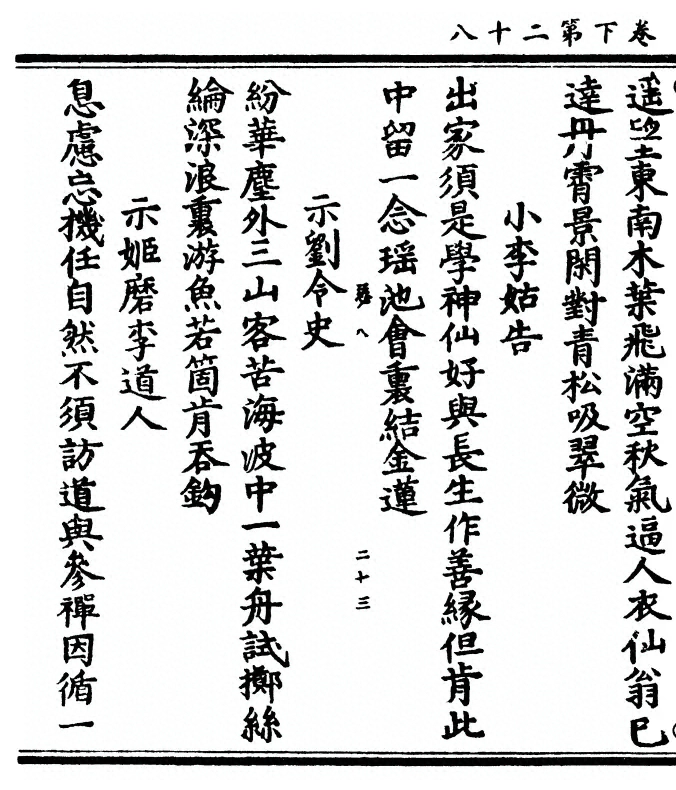 卷下第二十八
遥望東南木葉飛滿空秋氣逼人衣仙翁巳
達丹霄景閑對青松吸翠微
小李姑告
出家須是學神仙好與長生作善緣但肯此
中留一念瑶池會裏結金蓮
八
二十三
示劉令史
紛華塵外三山客苦海波中一葉舟試擲絲
綸深浪裏游魚若箇肯吞鈎
示姬磨李道人
息慮忘機任自然不須訪道與參禪因循一